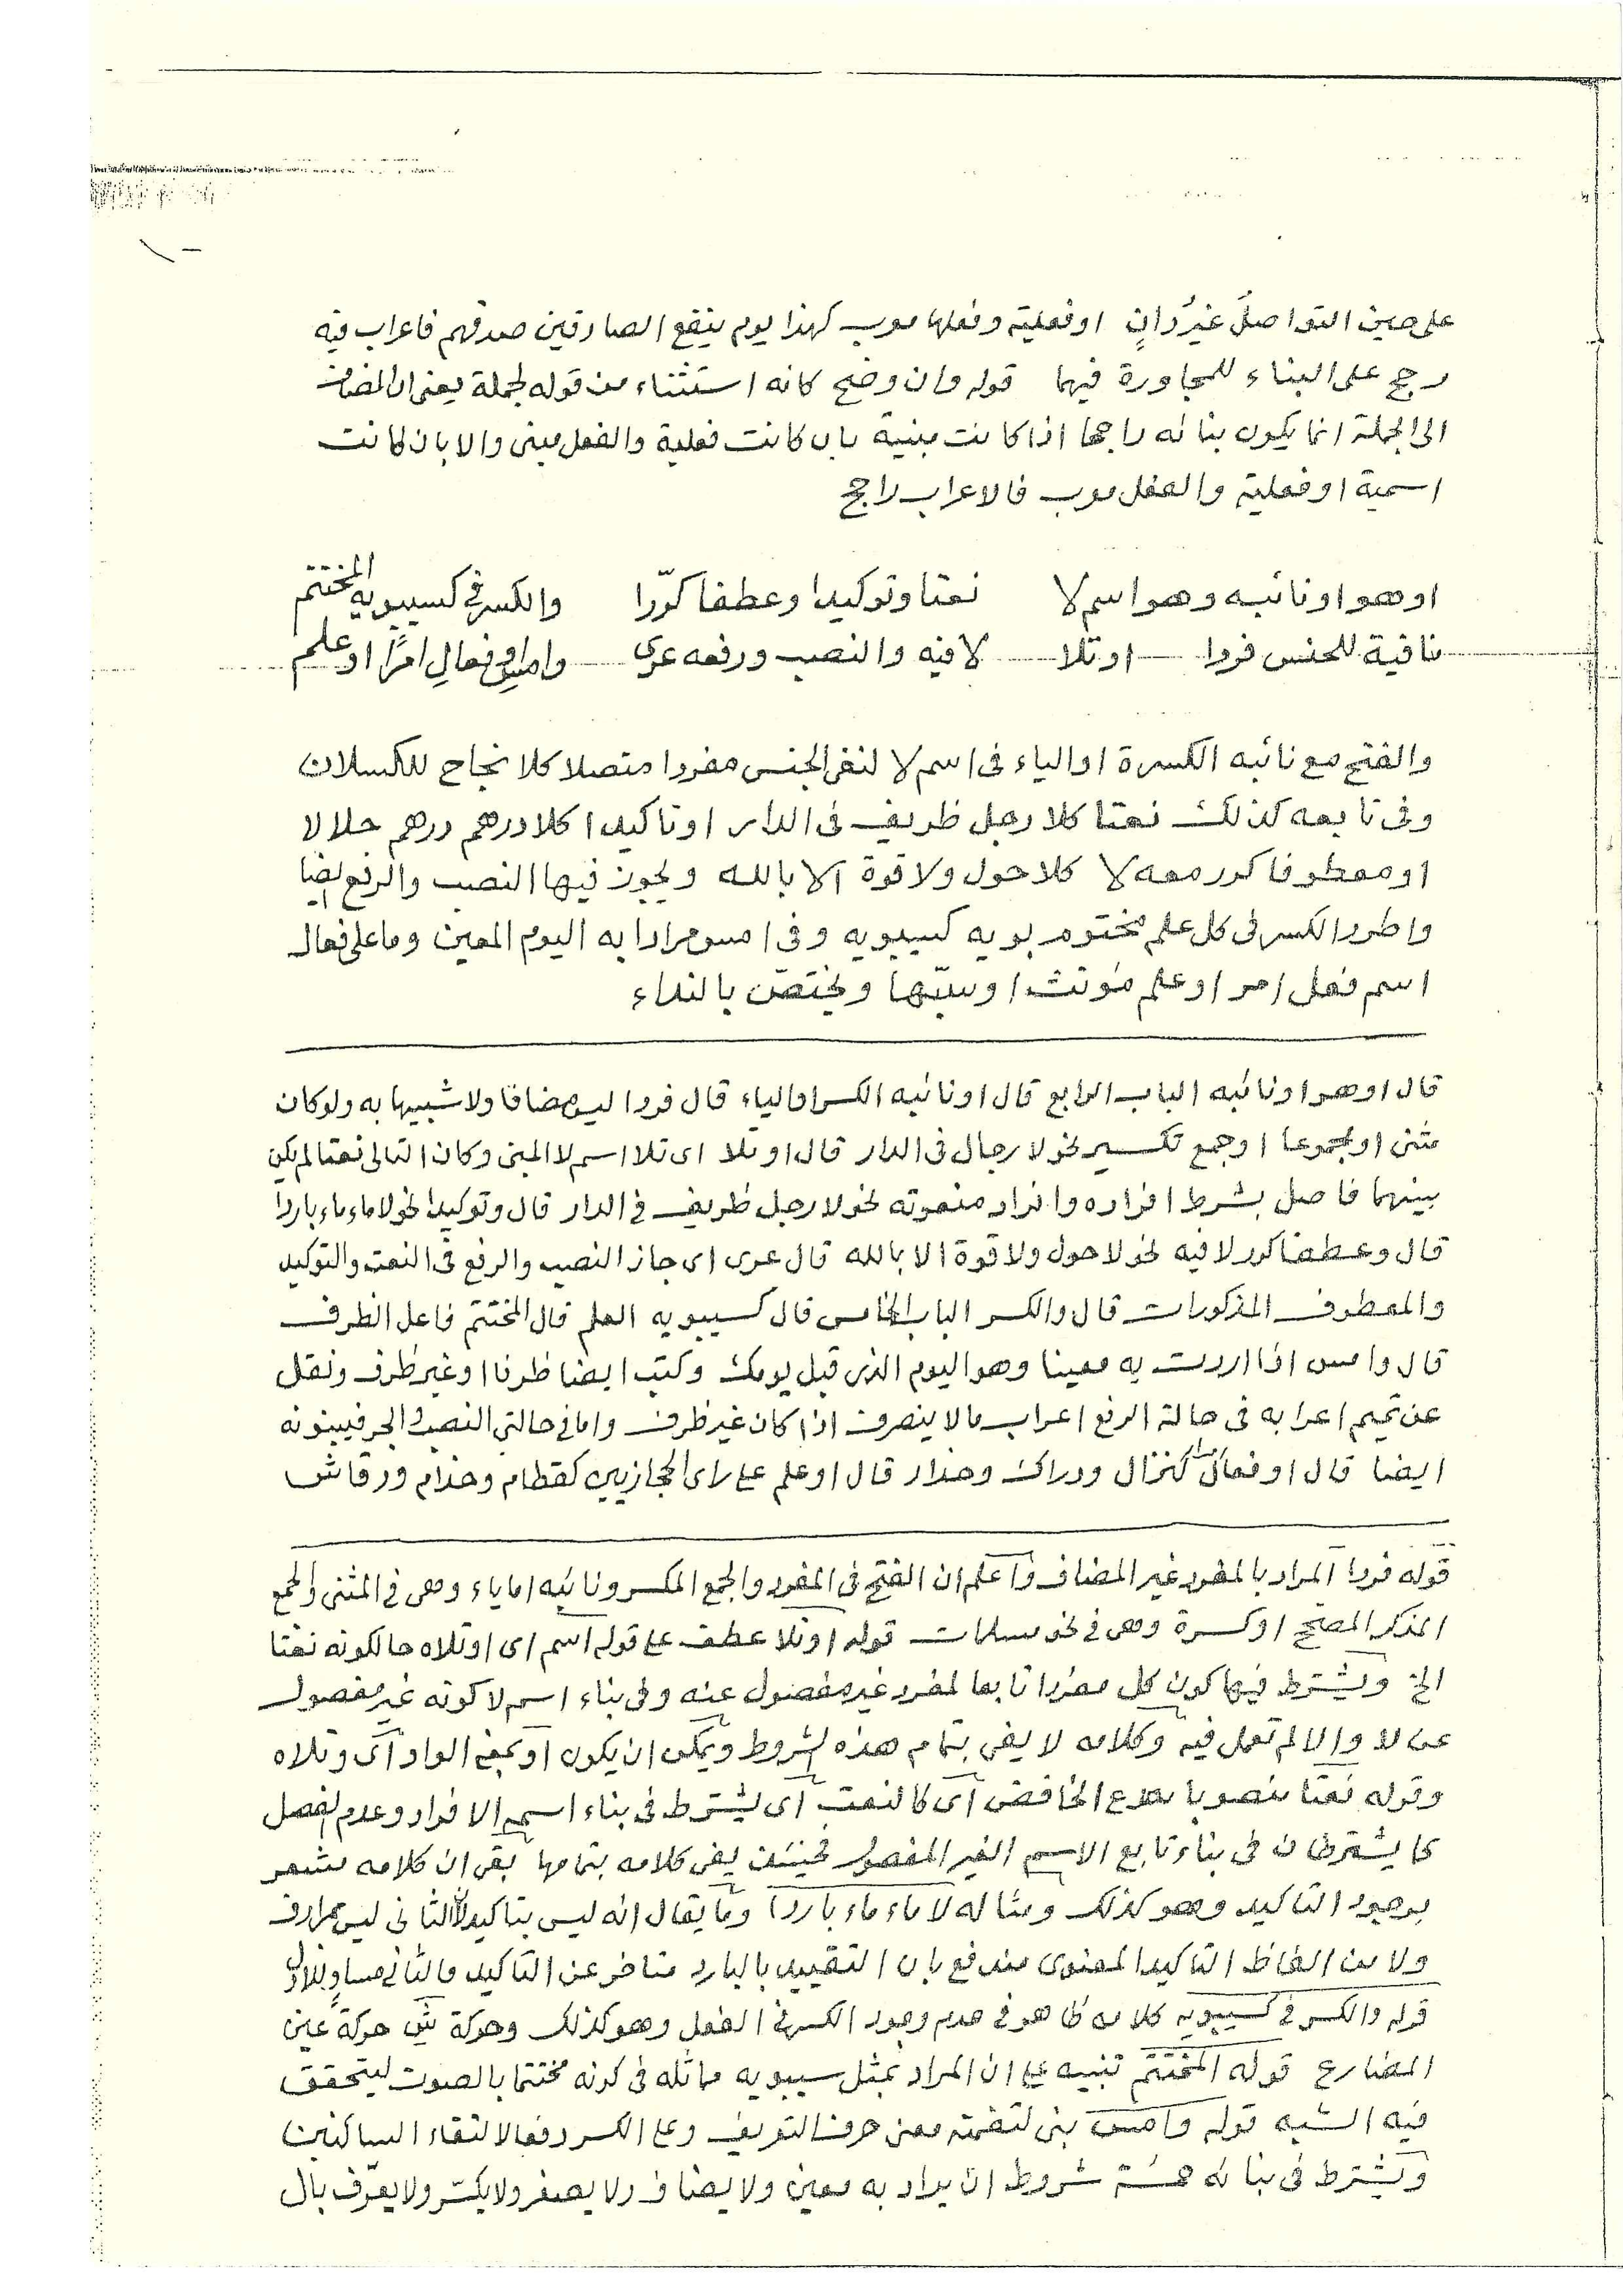 على حين التواصلُ غيرُ دانٍ او فعلية وفعلها معرب كهذا يوم ينفع الصادقين صدقهم فاعراب فيه
رجح على البناء للمجاورة فيهما قوله وان وضح كانه استثناء من قوله لجملة يعنى ان المضاف
الى الجملة انما يكون بنائه راجحا اذا كانت مبنية بان كانت فعلية والفعل مبنى والا بان كانت
اسمية او فعلية والفعل معرب فالاعراب راجح
او هو او نائبه وهو اسم لا نعتا وتوكيدا وعطفا كرّرا والكسر فى كسيبويه المختتم
نافية للجنس فردا او تلا لا فيه والنصب ورفعه عرى وامسِ او فعالِ امرًا او علم
والفتح مع نائبه الكسرة او الياء فى اسم لا لنفى الجنس مفردا متصلا كلا نجاح للكسلان
وفى تابعه كذلك نعتا كلا رجل ظريف فى الدار او تاكيدا كلا درهم درهم حلالا
او معطوفا كرر معه لا كلا حول ولا قوة الا بالله ويجوز فيها النصب والرفع ايضا
واطرد الكسر فى كل علم مختوم بويه كسيبويه وفى امس مرادا به اليوم المعين وما على فعال
اسم فعل امر او علم مؤنث او سبّها ويختصّ بالنداء
قال او هو او نائبه الباب الرابع قال او نائبه الكسر او الياء قال فردا ليس مضافا ولا شبيها به ولو كان
مثنى او مجموعا او جمع تكسير نحو لا رجال فى الدار قال او تلا اى تلا اسم لا المبنى وكان التالى نعتا لم يكن
بينهما فاصل بشرط افراده وافراد منعوته نحو لا رجل ظريف فى الدار قال وتوكيدا نحو لا ماء ماء باردا
قال وعطفا كرر لا فيه نحو لا حول ولا قوة الا بالله قال عرى اى جاز النصب والرفع فى النعت والتوكيد
والمعطوف المذكورات قال والكسر الباب الخامس قال كسيبويه العلم قال المختتم فاعل الظرف
قال وامس اذا اردت به معينا وهو اليوم الذى قبل يومك وكتب ايضا ظرفا او غير ظرف ونقل
عن تميم اعرابه فى حالة الرفع اعراب مالا ينصرف اذا كان غير ظرف واما فى حالتى النصب والجر فيبنونه
ايضا قال او فعال امرا كنزال ودراك وحذار قال او علم على راى الحجازيين كقطام وحذام ورقاش
قوله فردا المراد بالمفرد غير المضاف واعلم ان الفتح فى المفرد والجمع المكسر ونائبه اما ياء وهى فى المثنى والجمع
المذكر المصحح او كسرة وهى فى نحو مسلمات قوله او تلا عطف على قوله اسم اى او تلاه حالكونه نعتا
الخ ويشترط فيها كون كل مفردا تابعا لمفرد غير مفصول عنه وفى بناء اسم لا كونه غير مفصول
عن لا والا لم تعمل فيه وكلامه لا يفى بتمام هذه الشروط ويمكن ان يكون او بمعنى الواو اى وتلاه
وقوله نعتا منصوبا بنزع الخافض اى كالنعت اى يشترط فى بناء اسم الافراد وعدم الفصل
كما يشترطان فى بناء تابع الاسم الغير المفصول فحينئذ يفى كلامه بتمامها بقى ان كلامه مشعر
بوجود التاكيد وهو كذلك ومثاله لا ماء ماء باردا وما يقال انه ليس بتاكيد لان الثانى ليس بمرادف
ولا من الفاظ التاكيد المعنوى مندفع بان التقييد بالبارد متاخر عن التاكيد فالثانى مساو للاول
قوله والكسر فى كسيبويه كلامه ظاهر فى عدم وجود الكسر فى الفعل وهو كذلك وحركة شِ حركة عين
المضارع قوله المختتم تنبيه على ان المراد بمثل سيبويه مماثله فى كونه مختتما بالصوت ليتحقق
فيه الشبه قوله وامس بنى لتضمنه معنى حرف التعريف وعلى الكسر دفعا لالتقاء الساكنين
ويشترط فى بنائه خمسة شروط ان يراد به معين ولا يضاف ولا يصغر ولا يكسّر ولا يعرّف بال